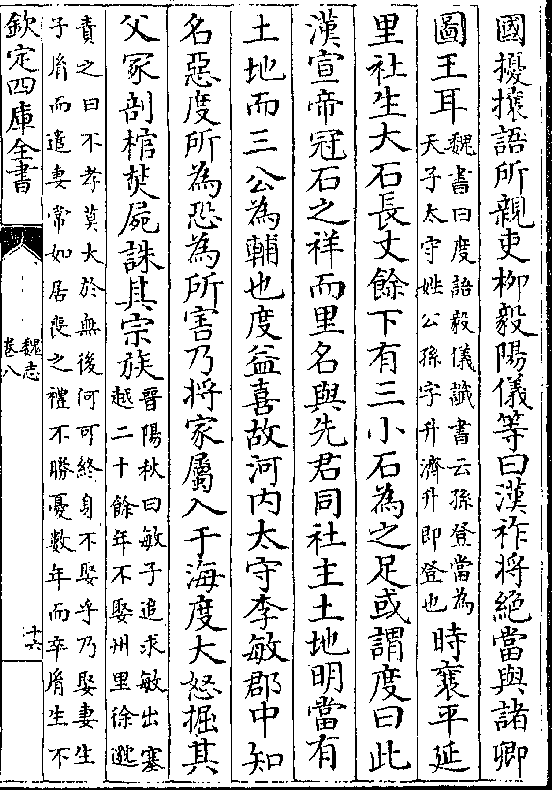 國擾攘語所親吏柳毅陽儀等曰漢祚將絶當與諸卿
圖王耳魏書曰度語毅儀䜟書云孫登當為
天子太守姓公孫字升濟升即登也時襄平延
里社生大石長丈餘下有三小石為之足或謂度曰此
漢宣帝冠石之祥而里名與先君同社主土地明當有
土地而三公為輔也度益喜故河内太守李敏郡中知
名惡度所為恐為所害乃將家屬入于海度大怒掘其
父冢剖棺焚屍誅其宗族晉陽秋曰敏子追求敏出塞
越二十餘年不娶州里徐邈
責之曰不孝莫大於無後何可終身不娶乎乃娶妻生
子胤而遣妻常如居喪之禮不勝憂數年而卒胤生不
欽定四庫全書
魏志
卷八
十六